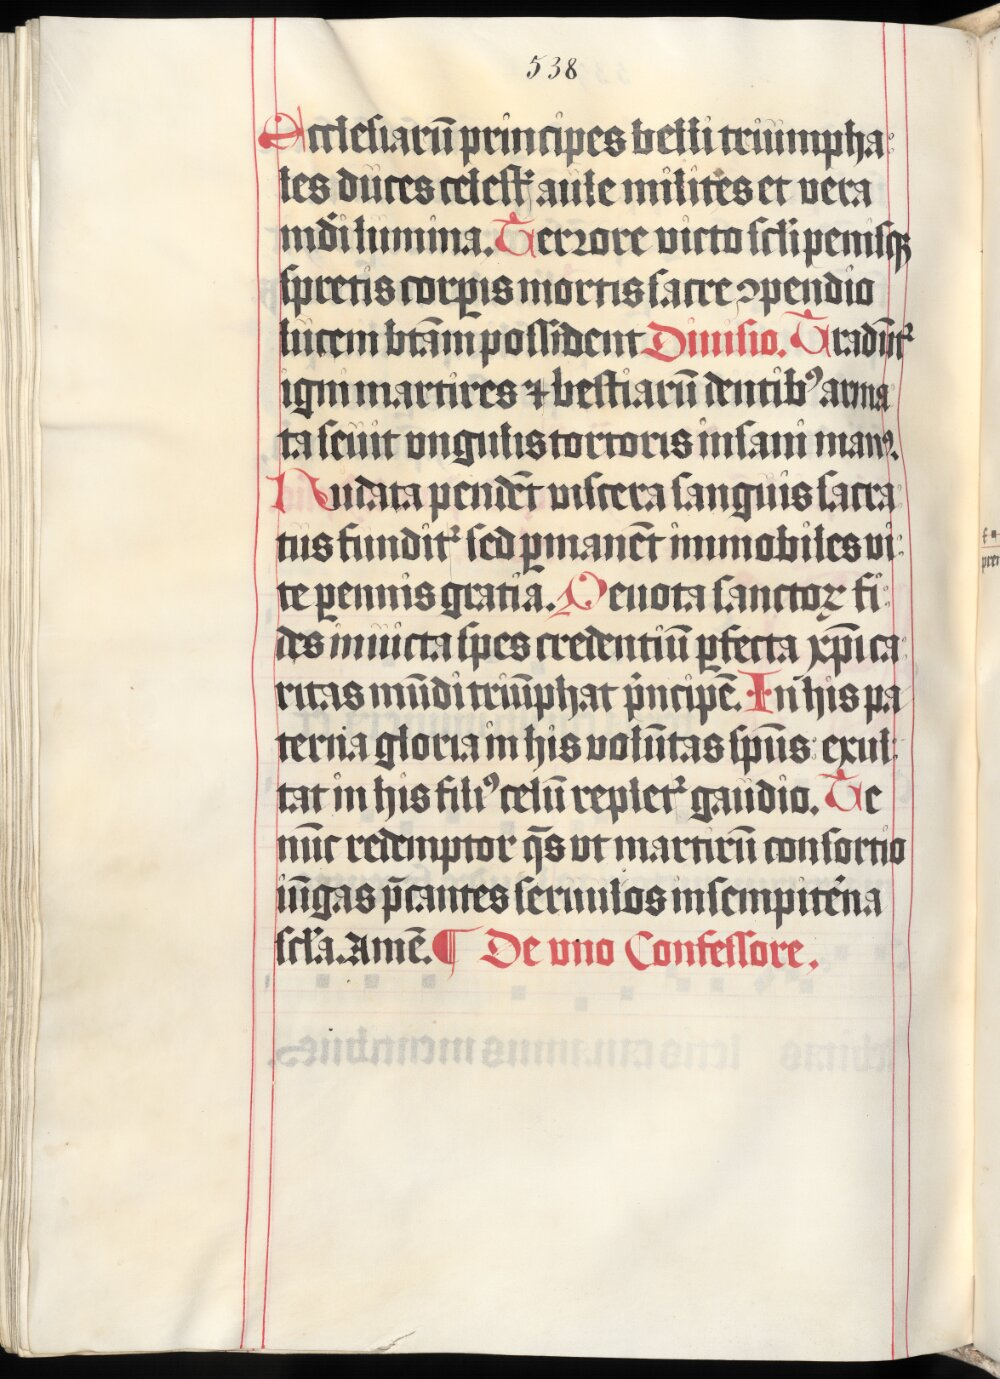 538
Ecclesiarū principes belli triumpha
les duces celestꝰ aule milites et vera
mūdi lumina. Terrore victo scli penisqꝫ
spretis corpis mortis sacre ꝯpendio
lucem btām possident Diuisio. Tradūtᷣ
igni martires ⁊ bestiarū dentibꝰ arma
ta seuit vngulis tortoris insani manꝰ.
Nudata pendēt viscera sanguis sacra
tus funditᷣ sed ꝑmanēt immobiles vi
te ꝑennis gratia. Deuota sanctoꝝ fi
des inuicta spes credentiū ꝑfecta xp̄i ca
ritas mūdi triūphat pͥncipē. In his pa
terna gloria in his volūtas spūs: exul
tat in his filiꝰ celū repletᷣ gaudio. Te
nūc redemptor q̄s vt martirū consortio
iūgas p̄cantes seruulos in sempiterna
scl̄a. Amē. ¶ De vno Confessore.